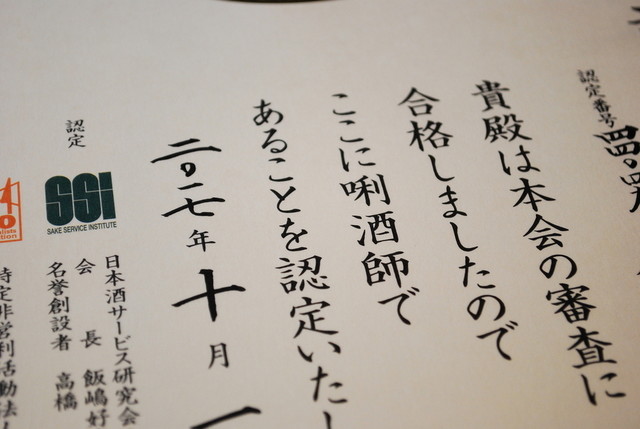 認定番号
貴殿は本会の審査に
合格しましたので
ここに唎酒師で
あることを認定いたし
二〇一七年十月一
認定
SSI
SAKE SERVICE INSTITUTE
日本酒サービス研究会
会 長 飯嶋好
名誉創設者 高橋
特定非営利活動法人